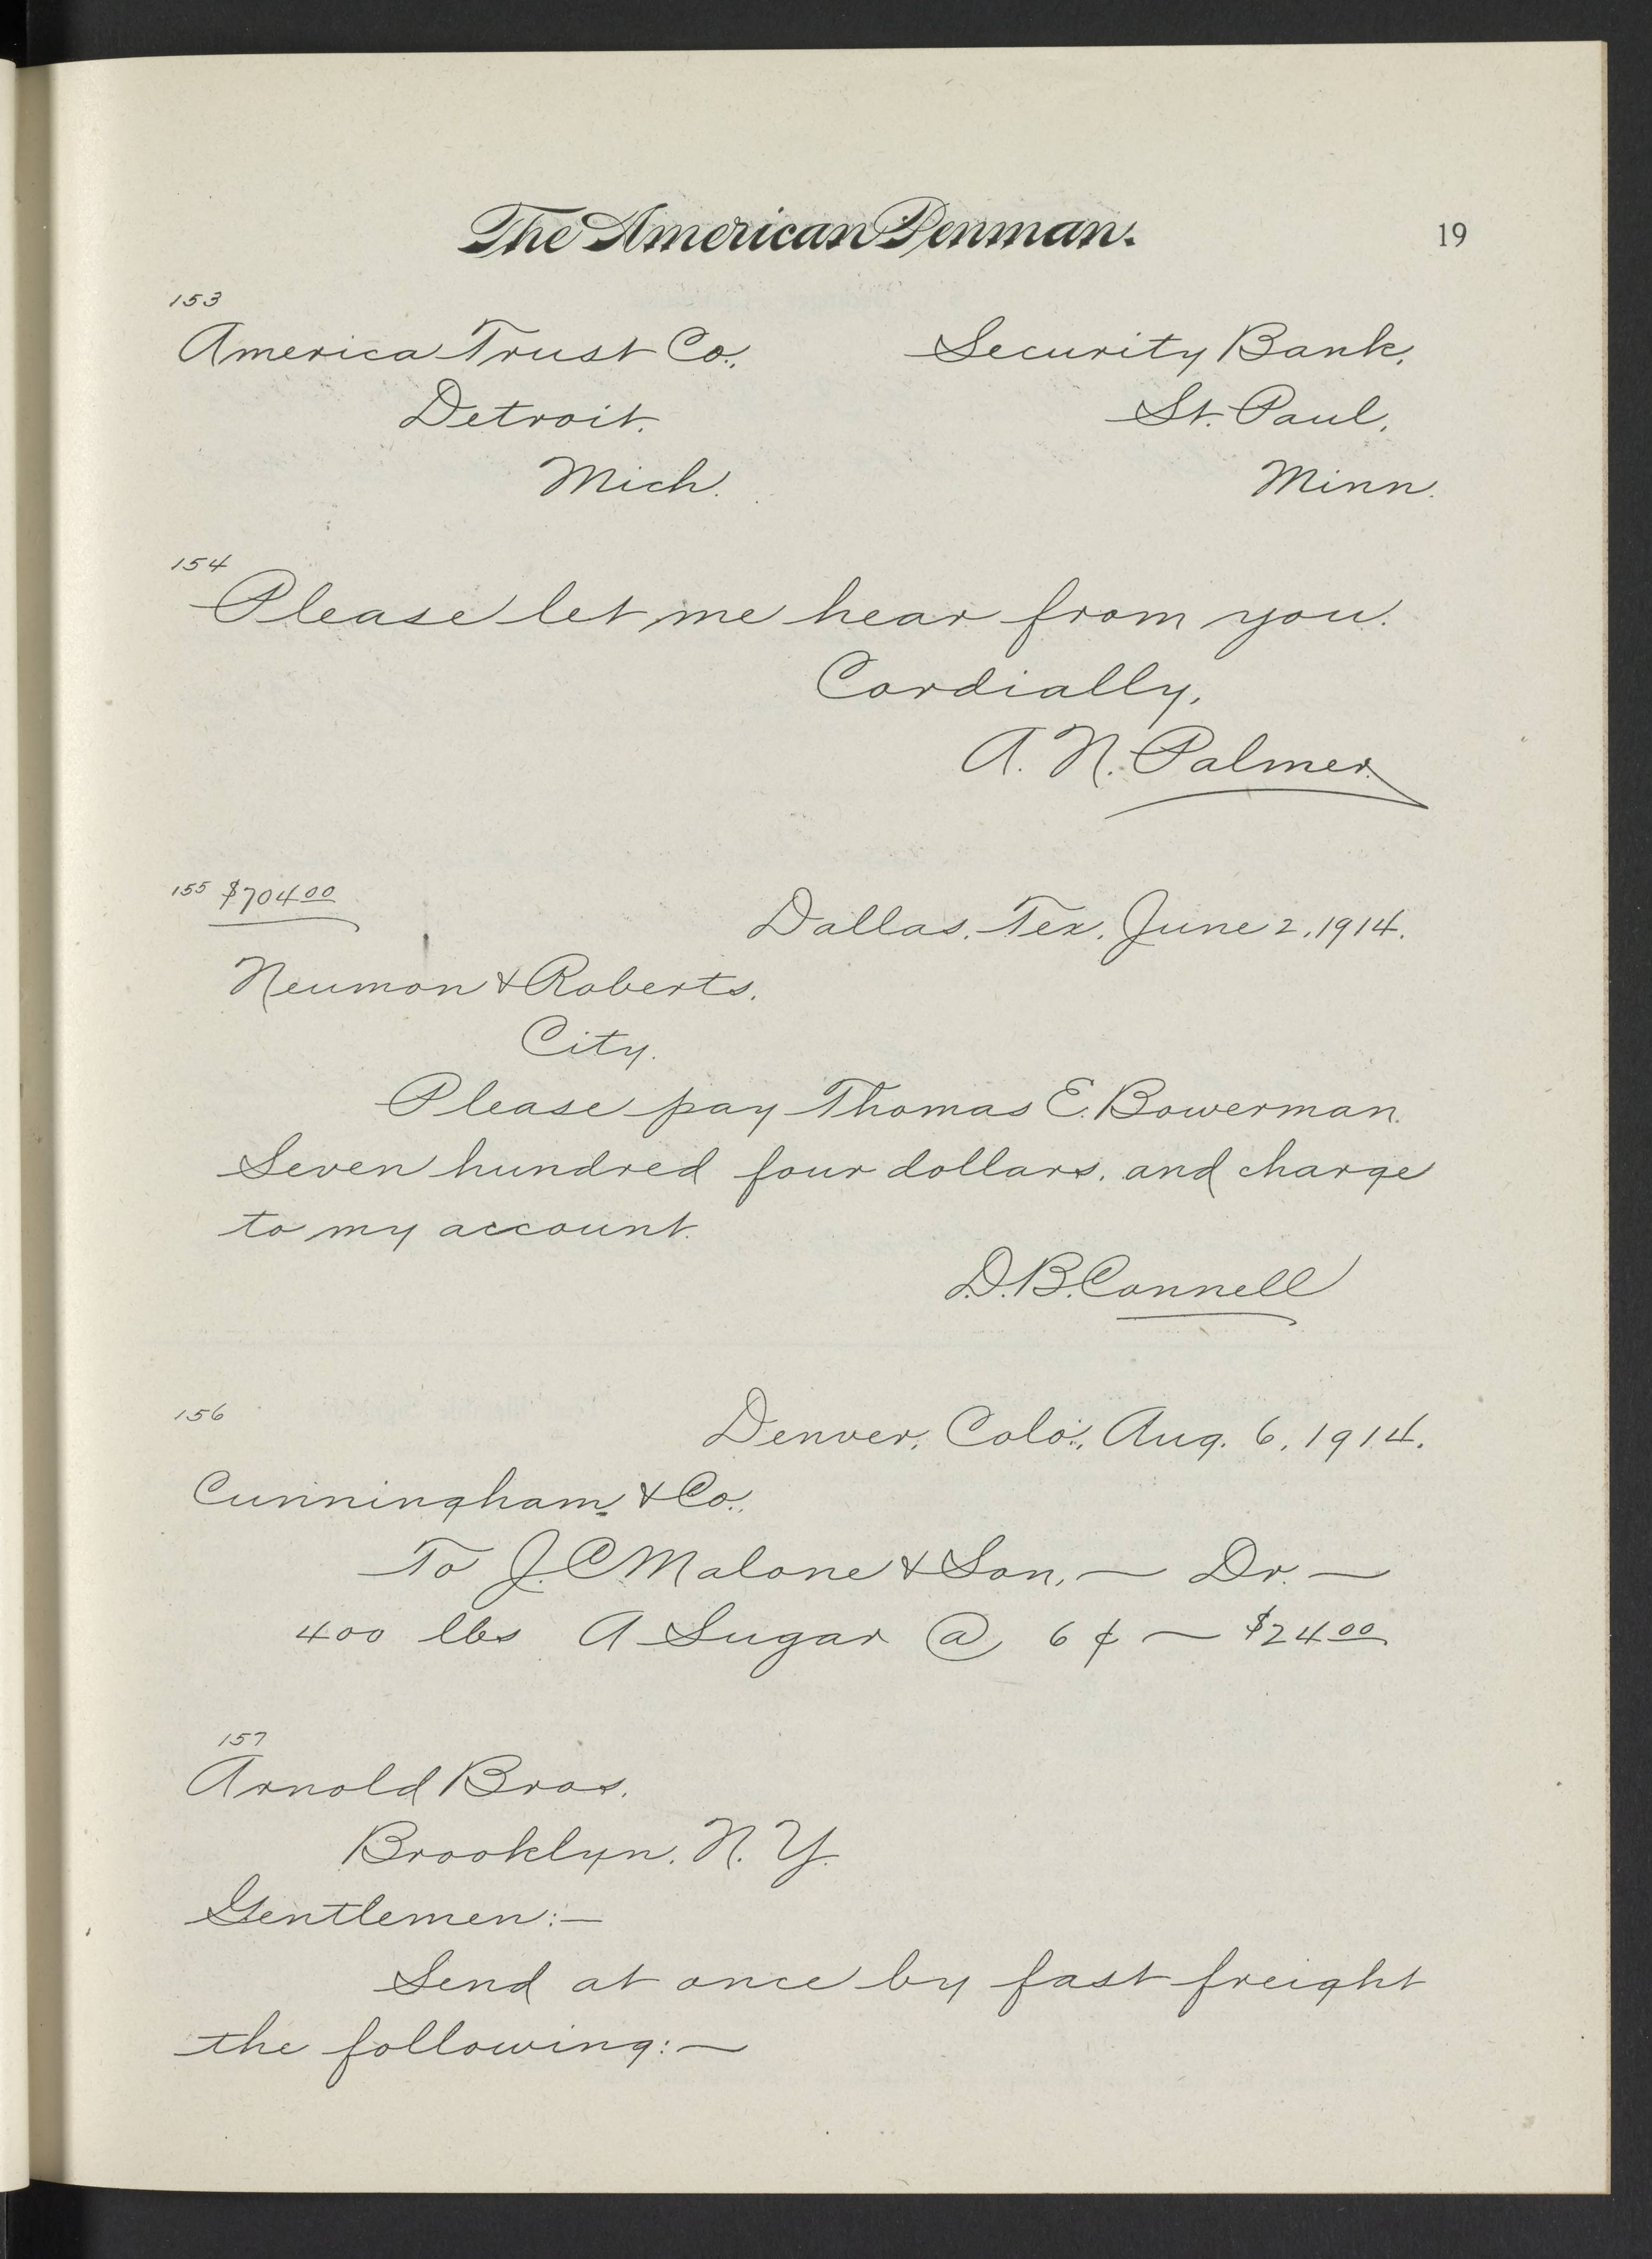 The American Penman.
19
153
America Trust Co., Security Bank,
Detroit, St. Paul,
Mich. Minn.
154
Please let me hear from you.
Cordially,
A. N. Palmer.
155 $704 00
Dallas, Tex, June 2, 1914.
Neumon & Roberts,
City.
Please pay Thomas E. Bowerman
Seven hundred four dollars, and charge
to my account.
D. B. Connell
156
Denver, Colo., Aug. 6, 1914.
Cunningham & Co.,
To J. C. Malone & Son, — Dr. —
400 lbs A Sugar @ 6¢ — $24 00
157
Arnold Bros.
Brooklyn, N. Y.
Gentlemen:—
Send at once by fast freight
the following:—